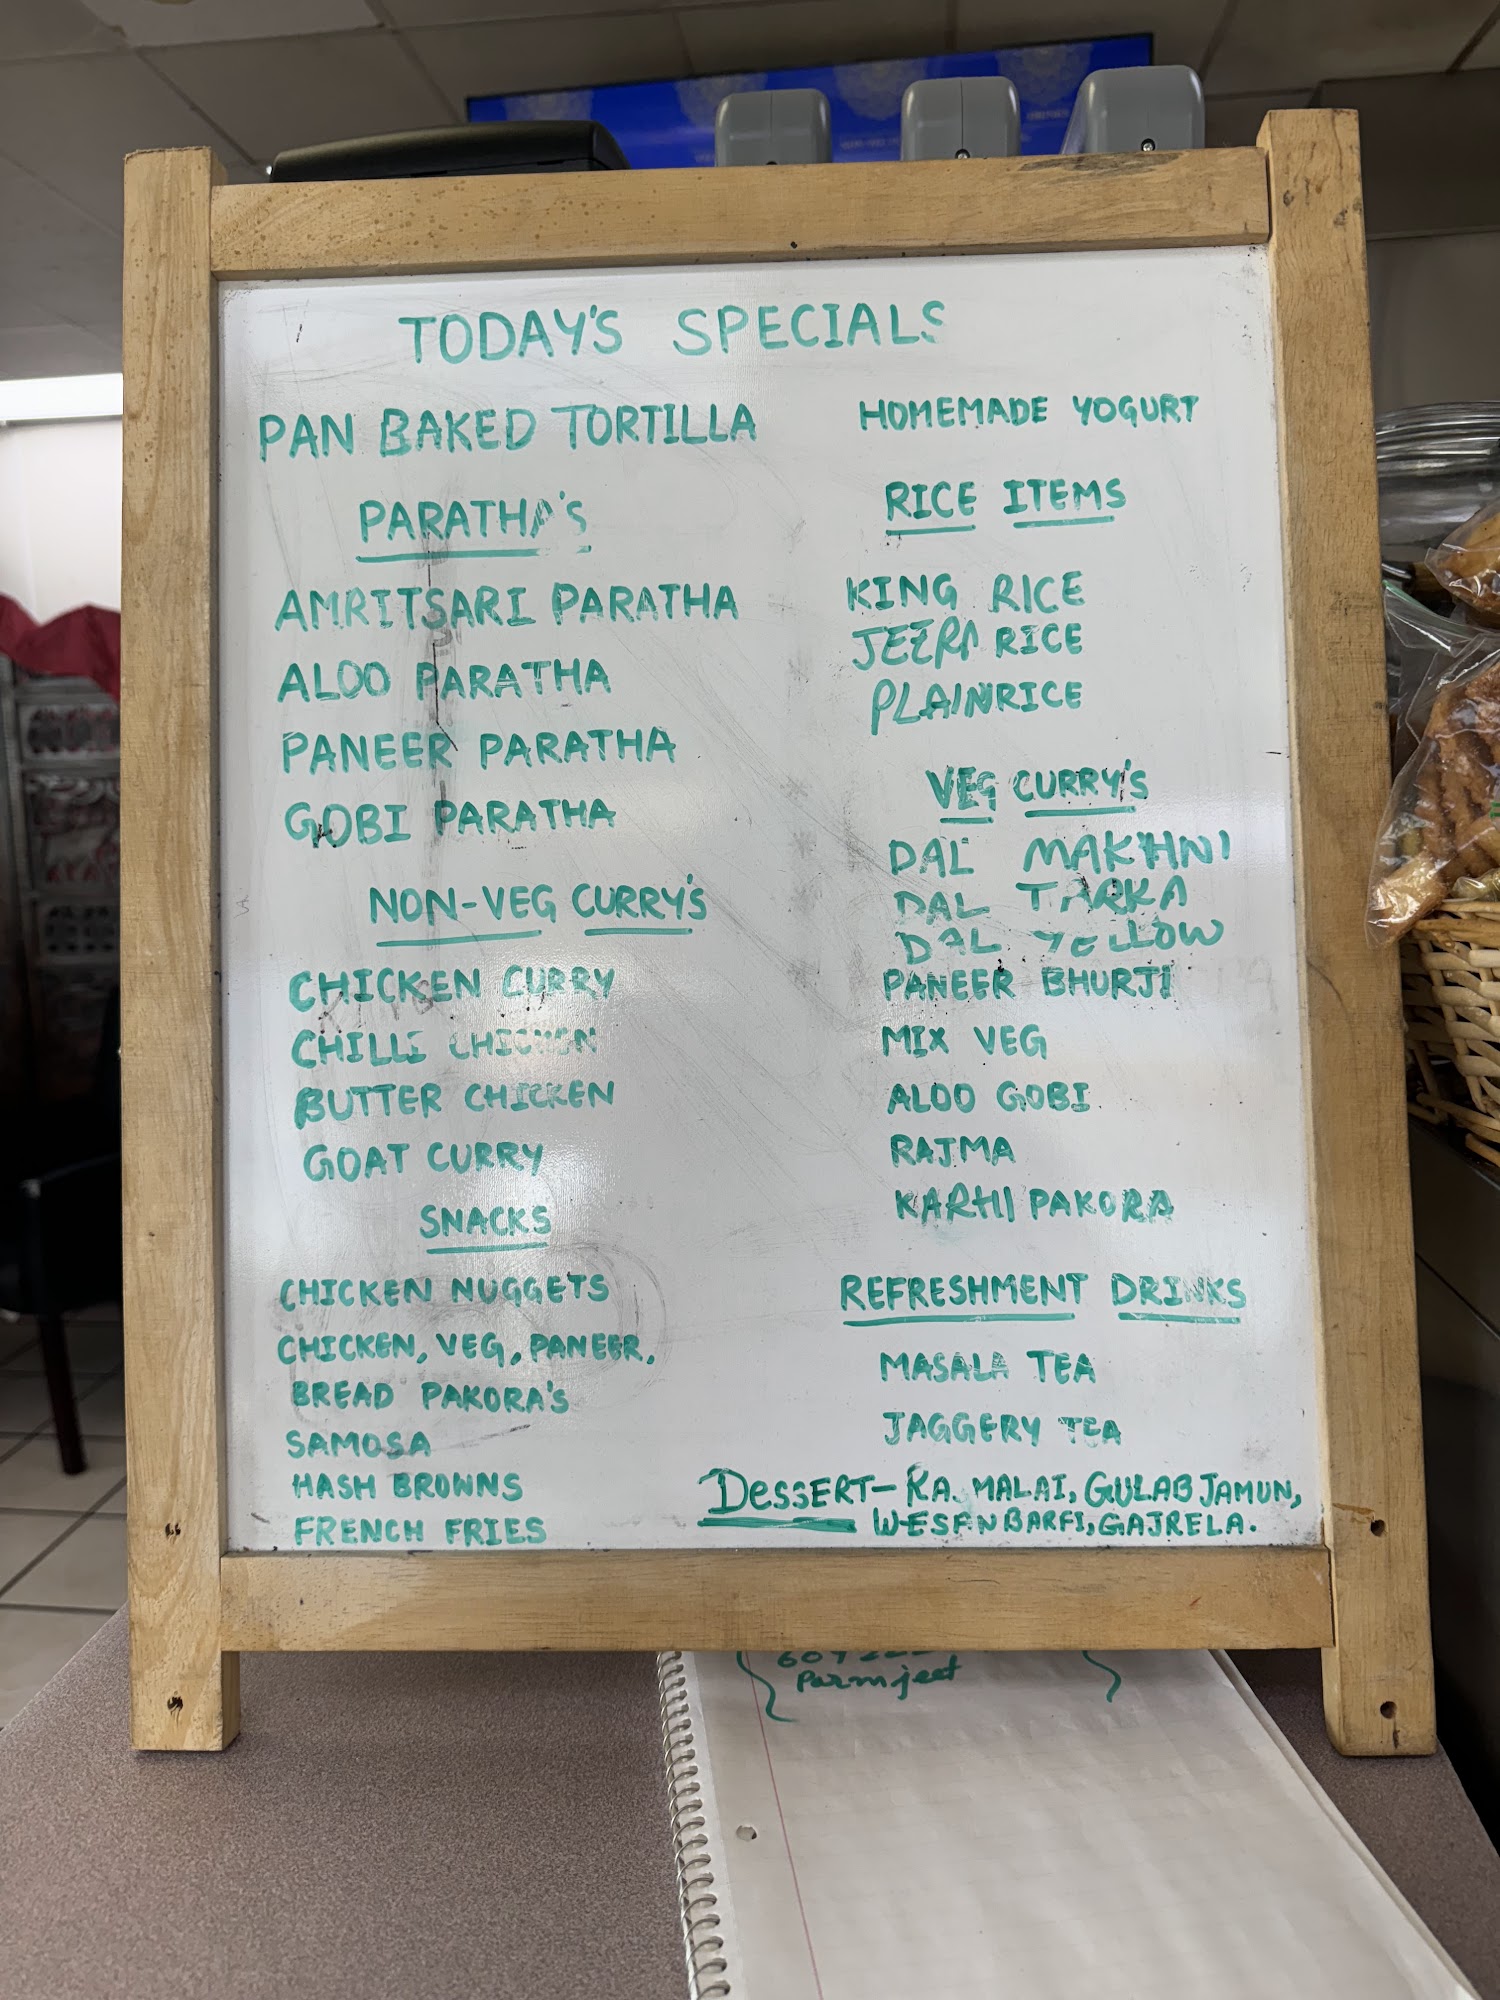 TODAY'S SPECIALS
PAN BAKED TORTILLA
PARATHA'S
AMRITSARI PARATHA
ALOO PARATHA
PANEER PARATHA
GOBI PARATHA
NON-VEG CURRY'S
CHICKEN CURRY
CHILLI CHICKEN
BUTTER CHICKEN
GOAT CURRY
SNACKS
CHICKEN NUGGETS
CHICKEN, VEG, PANEER,
BREAD PAKORA'S
SAMOSA
HASH BROWNS
FRENCH FRIES
HOMEMADE YOGURT
RICE ITEMS
KING RICE
JEERA RICE
PLAIN RICE
VEG CURRY'S
DAL MAKHNI
DAL TARKA
DAL YELLOW
PANEER BHURJI
MIX VEG
ALOO GOBI
RAJMA
KARHI PAKORA
REFRESHMENT DRINKS
MASALA TEA
JAGGERY TEA
DESSERT- MALAI, GULAB JAMUN,
BARFI, GAJRELA.
Parmjeet